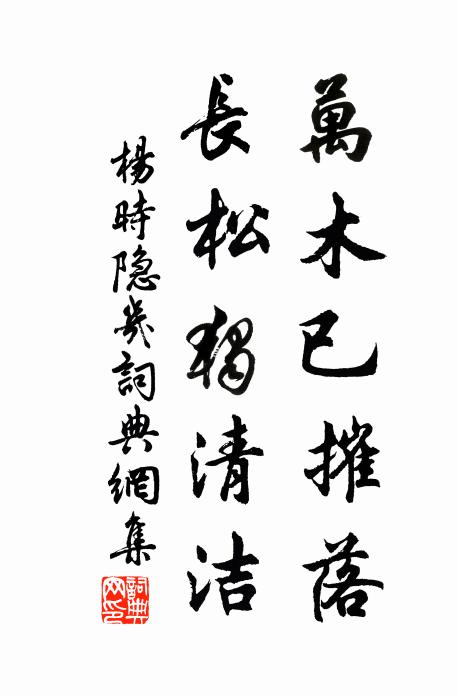 萬木已摧落
長松獨清洁
楊時隐几詞典網集
詞典網印